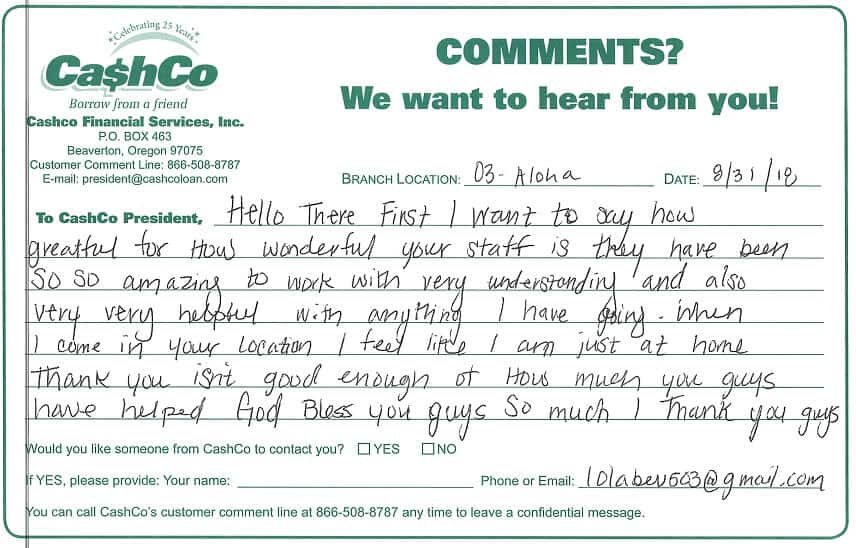 Celebrating 25 Years
Ca$hCo
Borrow from a friend
Cashco Financial Services, Inc.
P.O. BOX 463
Beaverton, Oregon 97075
Customer Comment Line: 866-508-8787
E-mail: president@cashcoloan.com
COMMENTS?
We want to hear from you!
BRANCH LOCATION: 03-Aloha DATE: 8/31/18
To CashCo President, Hello There First I want to say how
greatful for How's wonderful your staff is they have been
SO SO amazing to work with very understanding and also
very very helpful with anything I have going. When
I come in your location I feel like I am just at home
Thank you isn't good enough of How much you guys
have helped God Bless you guys So much I Thank you guys
Would you like someone from CashCo to contact you? ☐ YES ☐ NO
If YES, please provide: Your name: Phone or Email: lolabev503@gmail.com
You can call CashCo's customer comment line at 866-508-8787 any time to leave a confidential message.